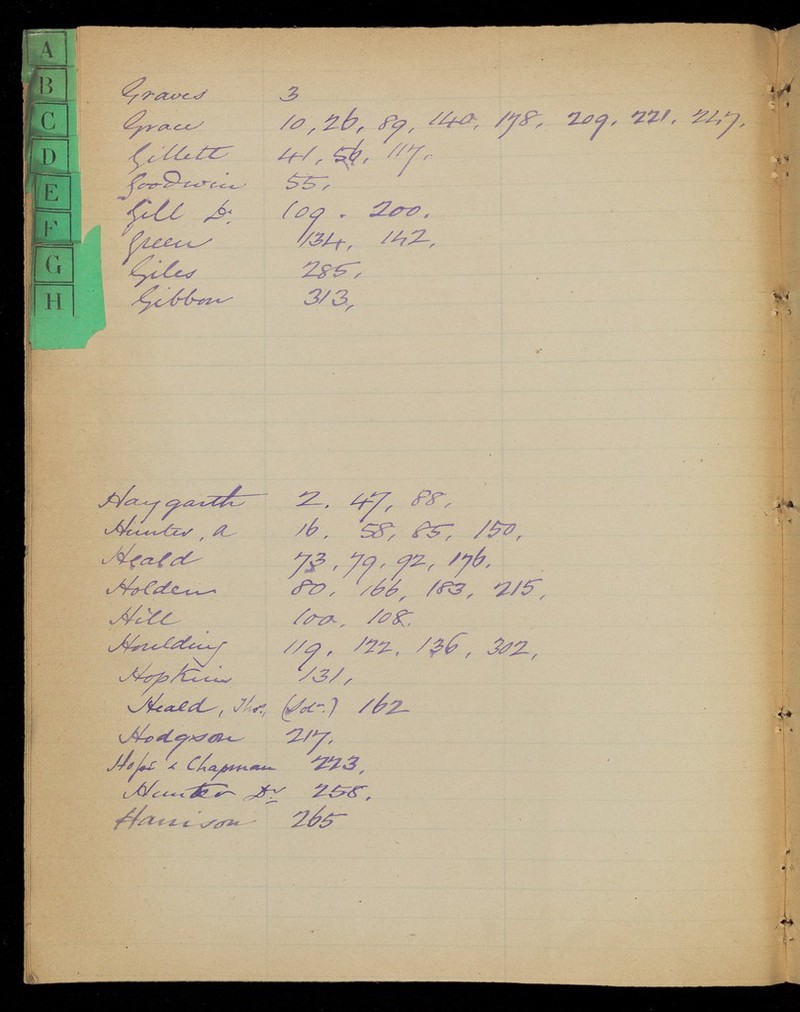 A
B
C
D
E
F
G
H
Graves 3
Grace 10, 26, 89, 140, 178, 209, 221, 247,
Gillett 41, 56, 117,
Goodwin 55,
Gill Dr 109. 200.
Green 134, 142,
Giles 285,
Gibbon 313,
Haygarth 2. 47, 88,
Hunter, A 16. 58, 85, 150,
Heald 73, 79, 92, 176.
Holden 80, 166, 183, 215,
Hill 100, 108.
Houlding 119, 122, 136, 302,
Hopkins 131,
Heald, Thos, 162
Hodgson 217.
Hope & Chapman 223,
Hunter Dr 258.
Harrison 265